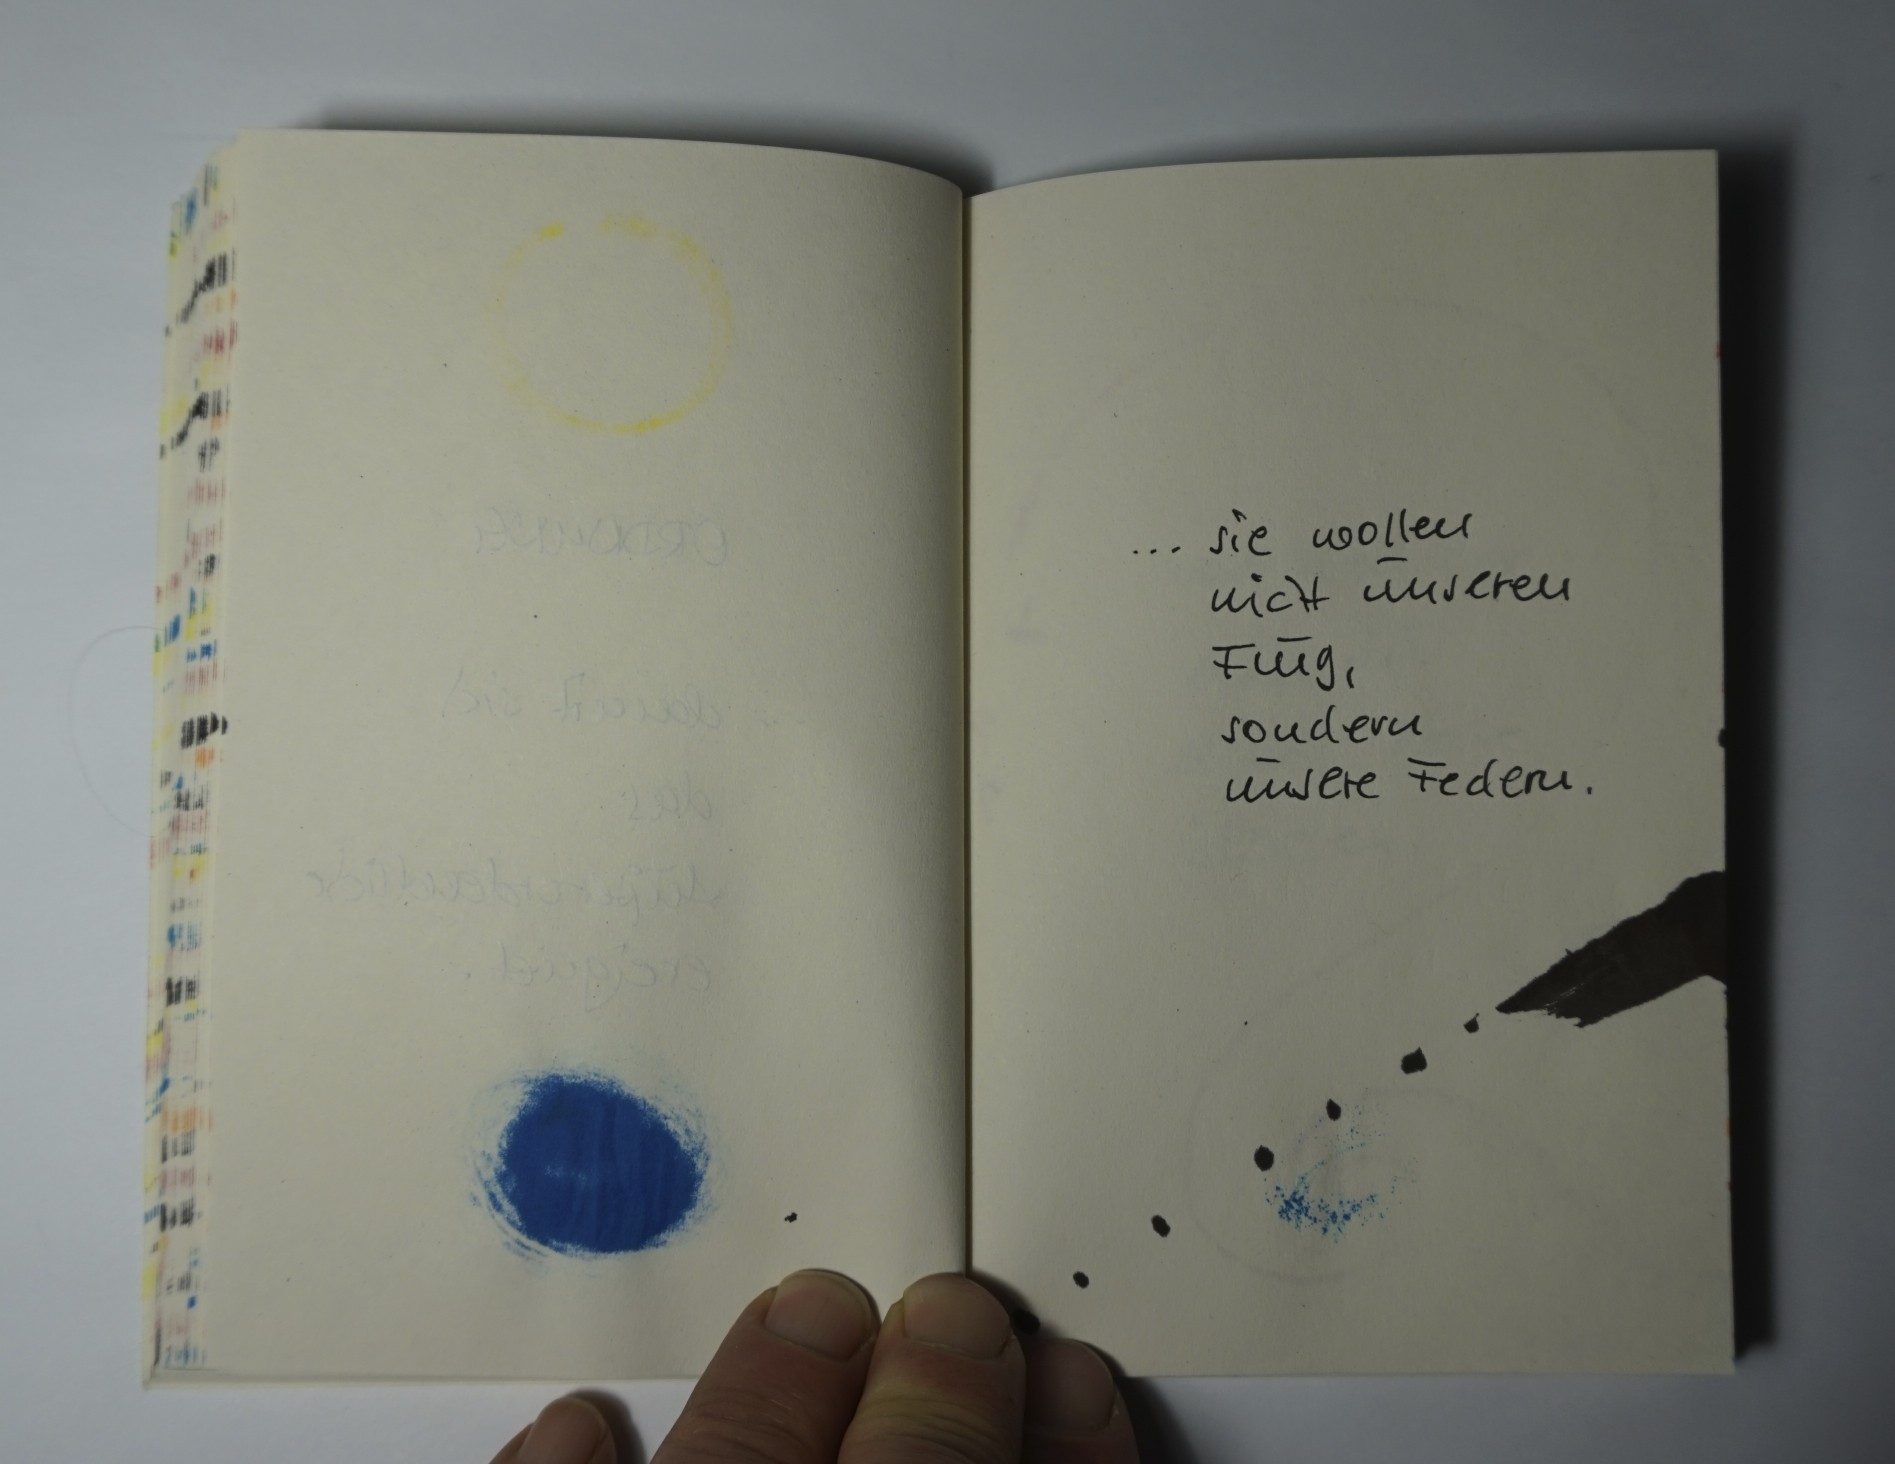 ... sie wollen
nicht unseren
Flug,
sondern
unsere Federn.